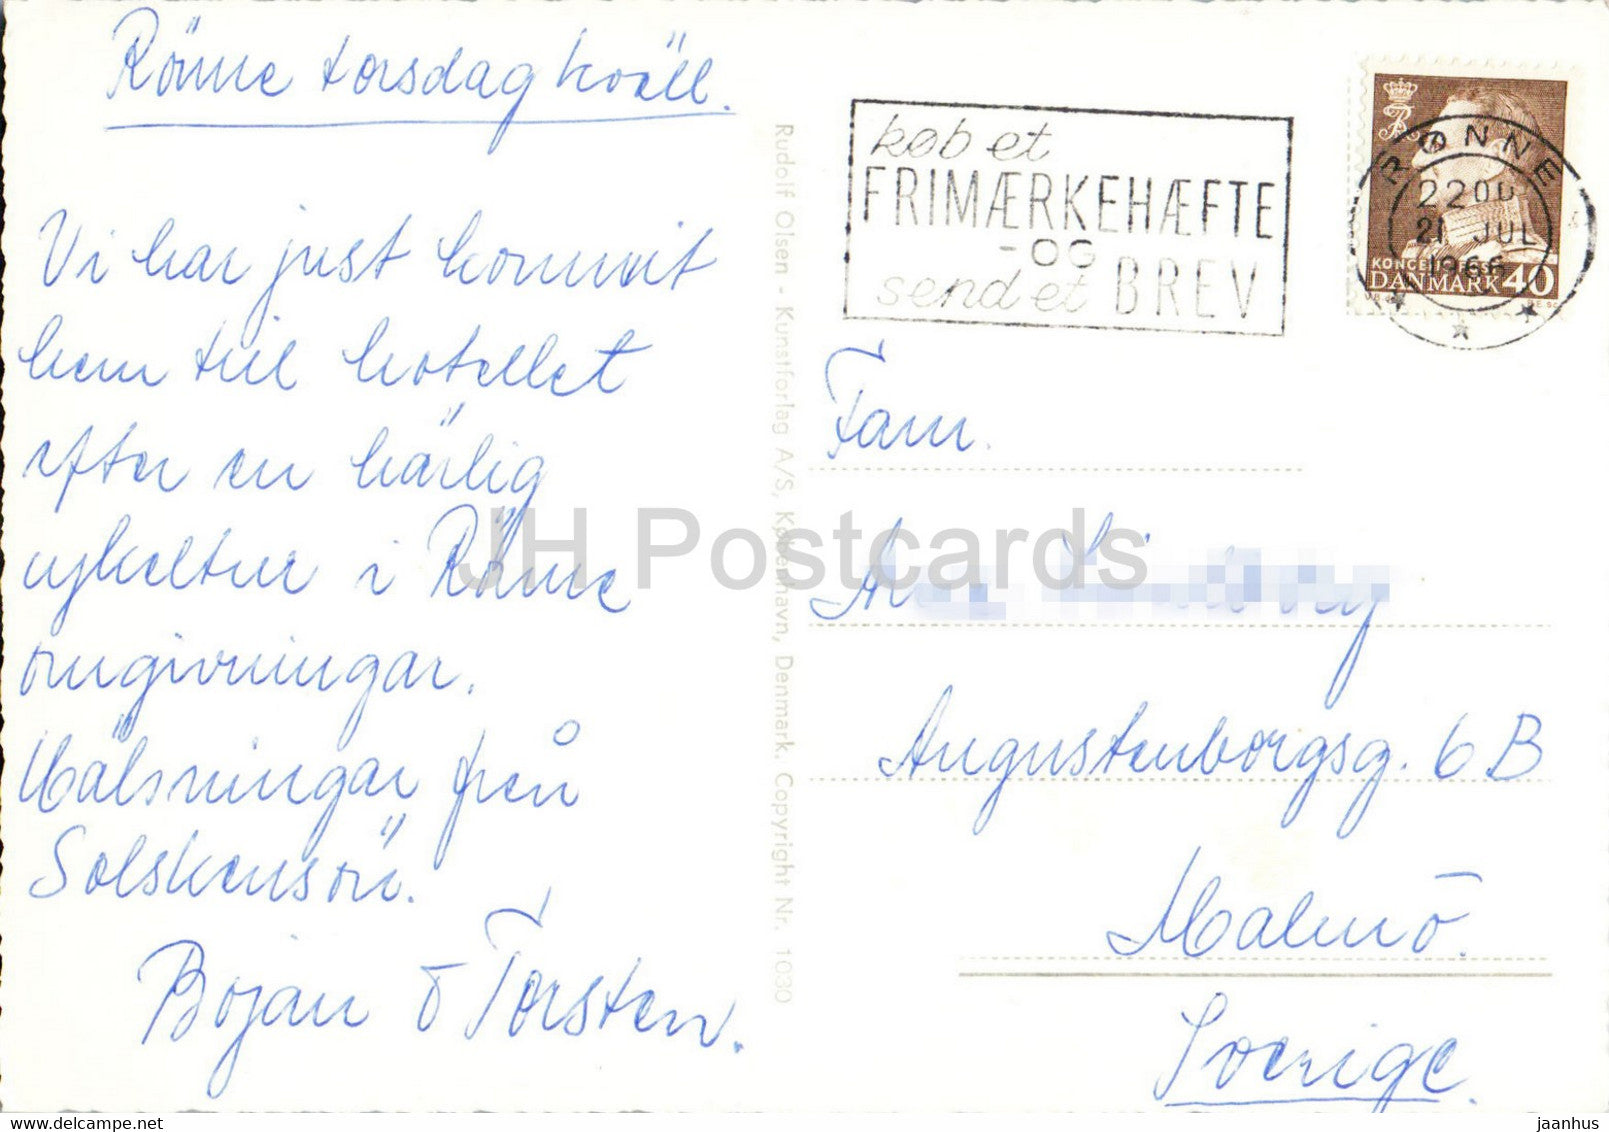 Rönne torsdag kväll.
Vi har just kommit
hem till hotellet
efter en härlig
cykeltur i Rönne
omgivningar.
Hälsningar från
Solskensön.
Bojan o Torsten.
Rudolf Olsen - Kunstforlag A/S, København, Denmark. Copyright Nr. 1030
køb et
FRIMÆRKEHÆFTE
-OG
send et BREV
RØNNE
22 00
21 JUL
1966
DANMARK 40
Fam.
Augustenborgsg. 6 B
Malmö.
Sverige.
JH Postcards
jaanhus